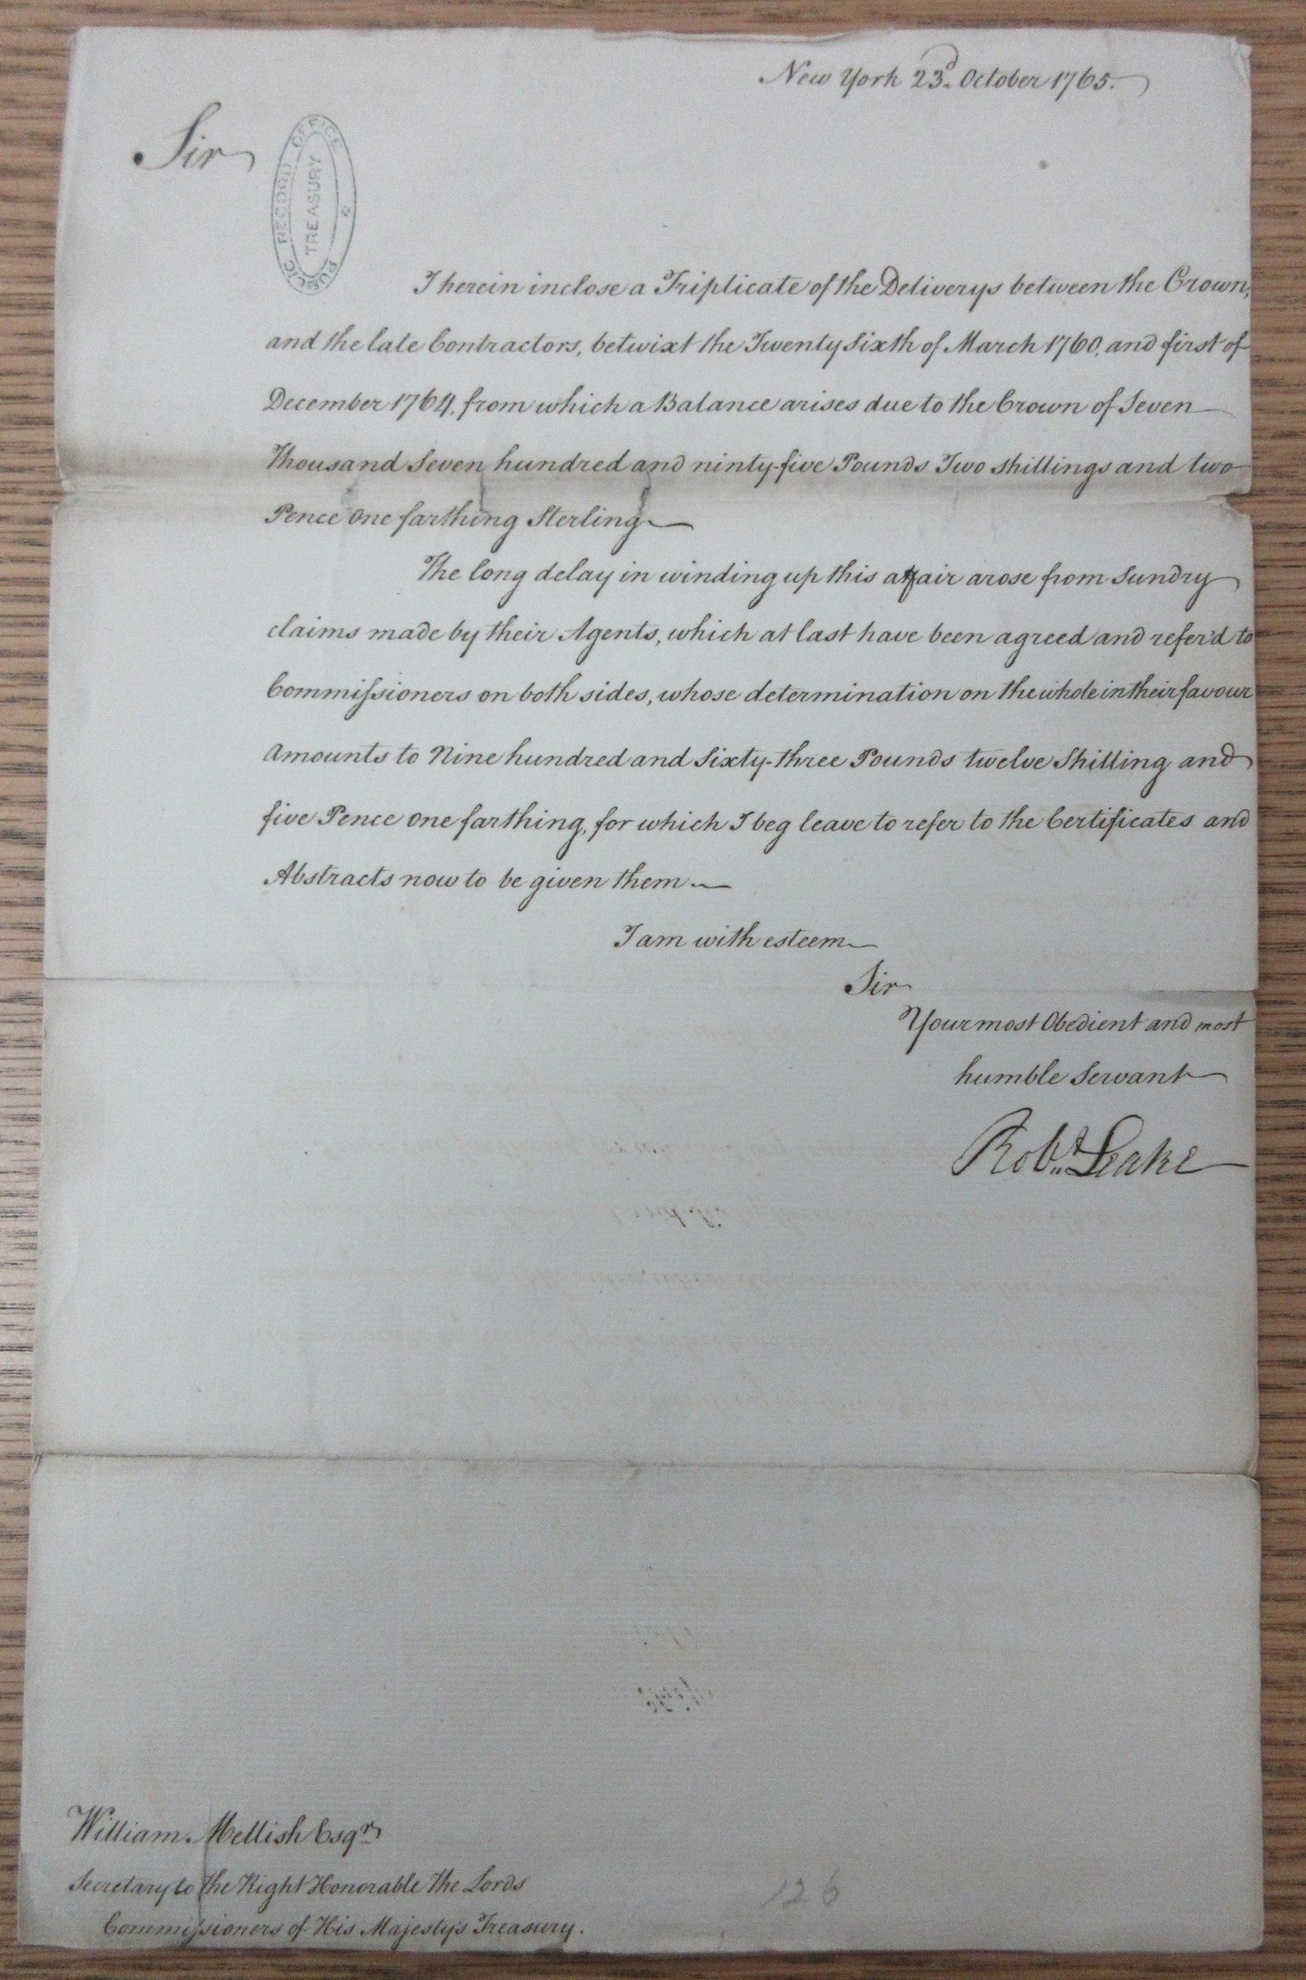 New York 23d. October 1765.
Sir
PUBLIC RECORD OFFICE
TREASURY
I herein inclose a Triplicate of the Deliverys between the Crown,
and the late Contractors, betwixt the Twenty Sixth of March 1760, and first of
December 1764, from which a Balance arises due to the Crown of Seven
Thousand Seven hundred and ninty-five Pounds Two shillings and two
Pence One farthing Sterling
The long delay in winding up this affair arose from Sundry
claims made by their Agents, which at last have been agreed and refer'd to
Commissioners on both sides, whose determination on the whole in their favour
Amounts to Nine hundred and Sixty-three Pounds twelve Shilling and
five Pence One farthing, for which I beg leave to refer to the Certificates and
Abstracts now to be given them
I am with esteem
Sir
Your most Obedient and most
humble Servant
Robt. Leake
William Mellish Esqr.
Secretary to the Right Honorable The Lords
Commissioners of His Majestys Treasury.
126